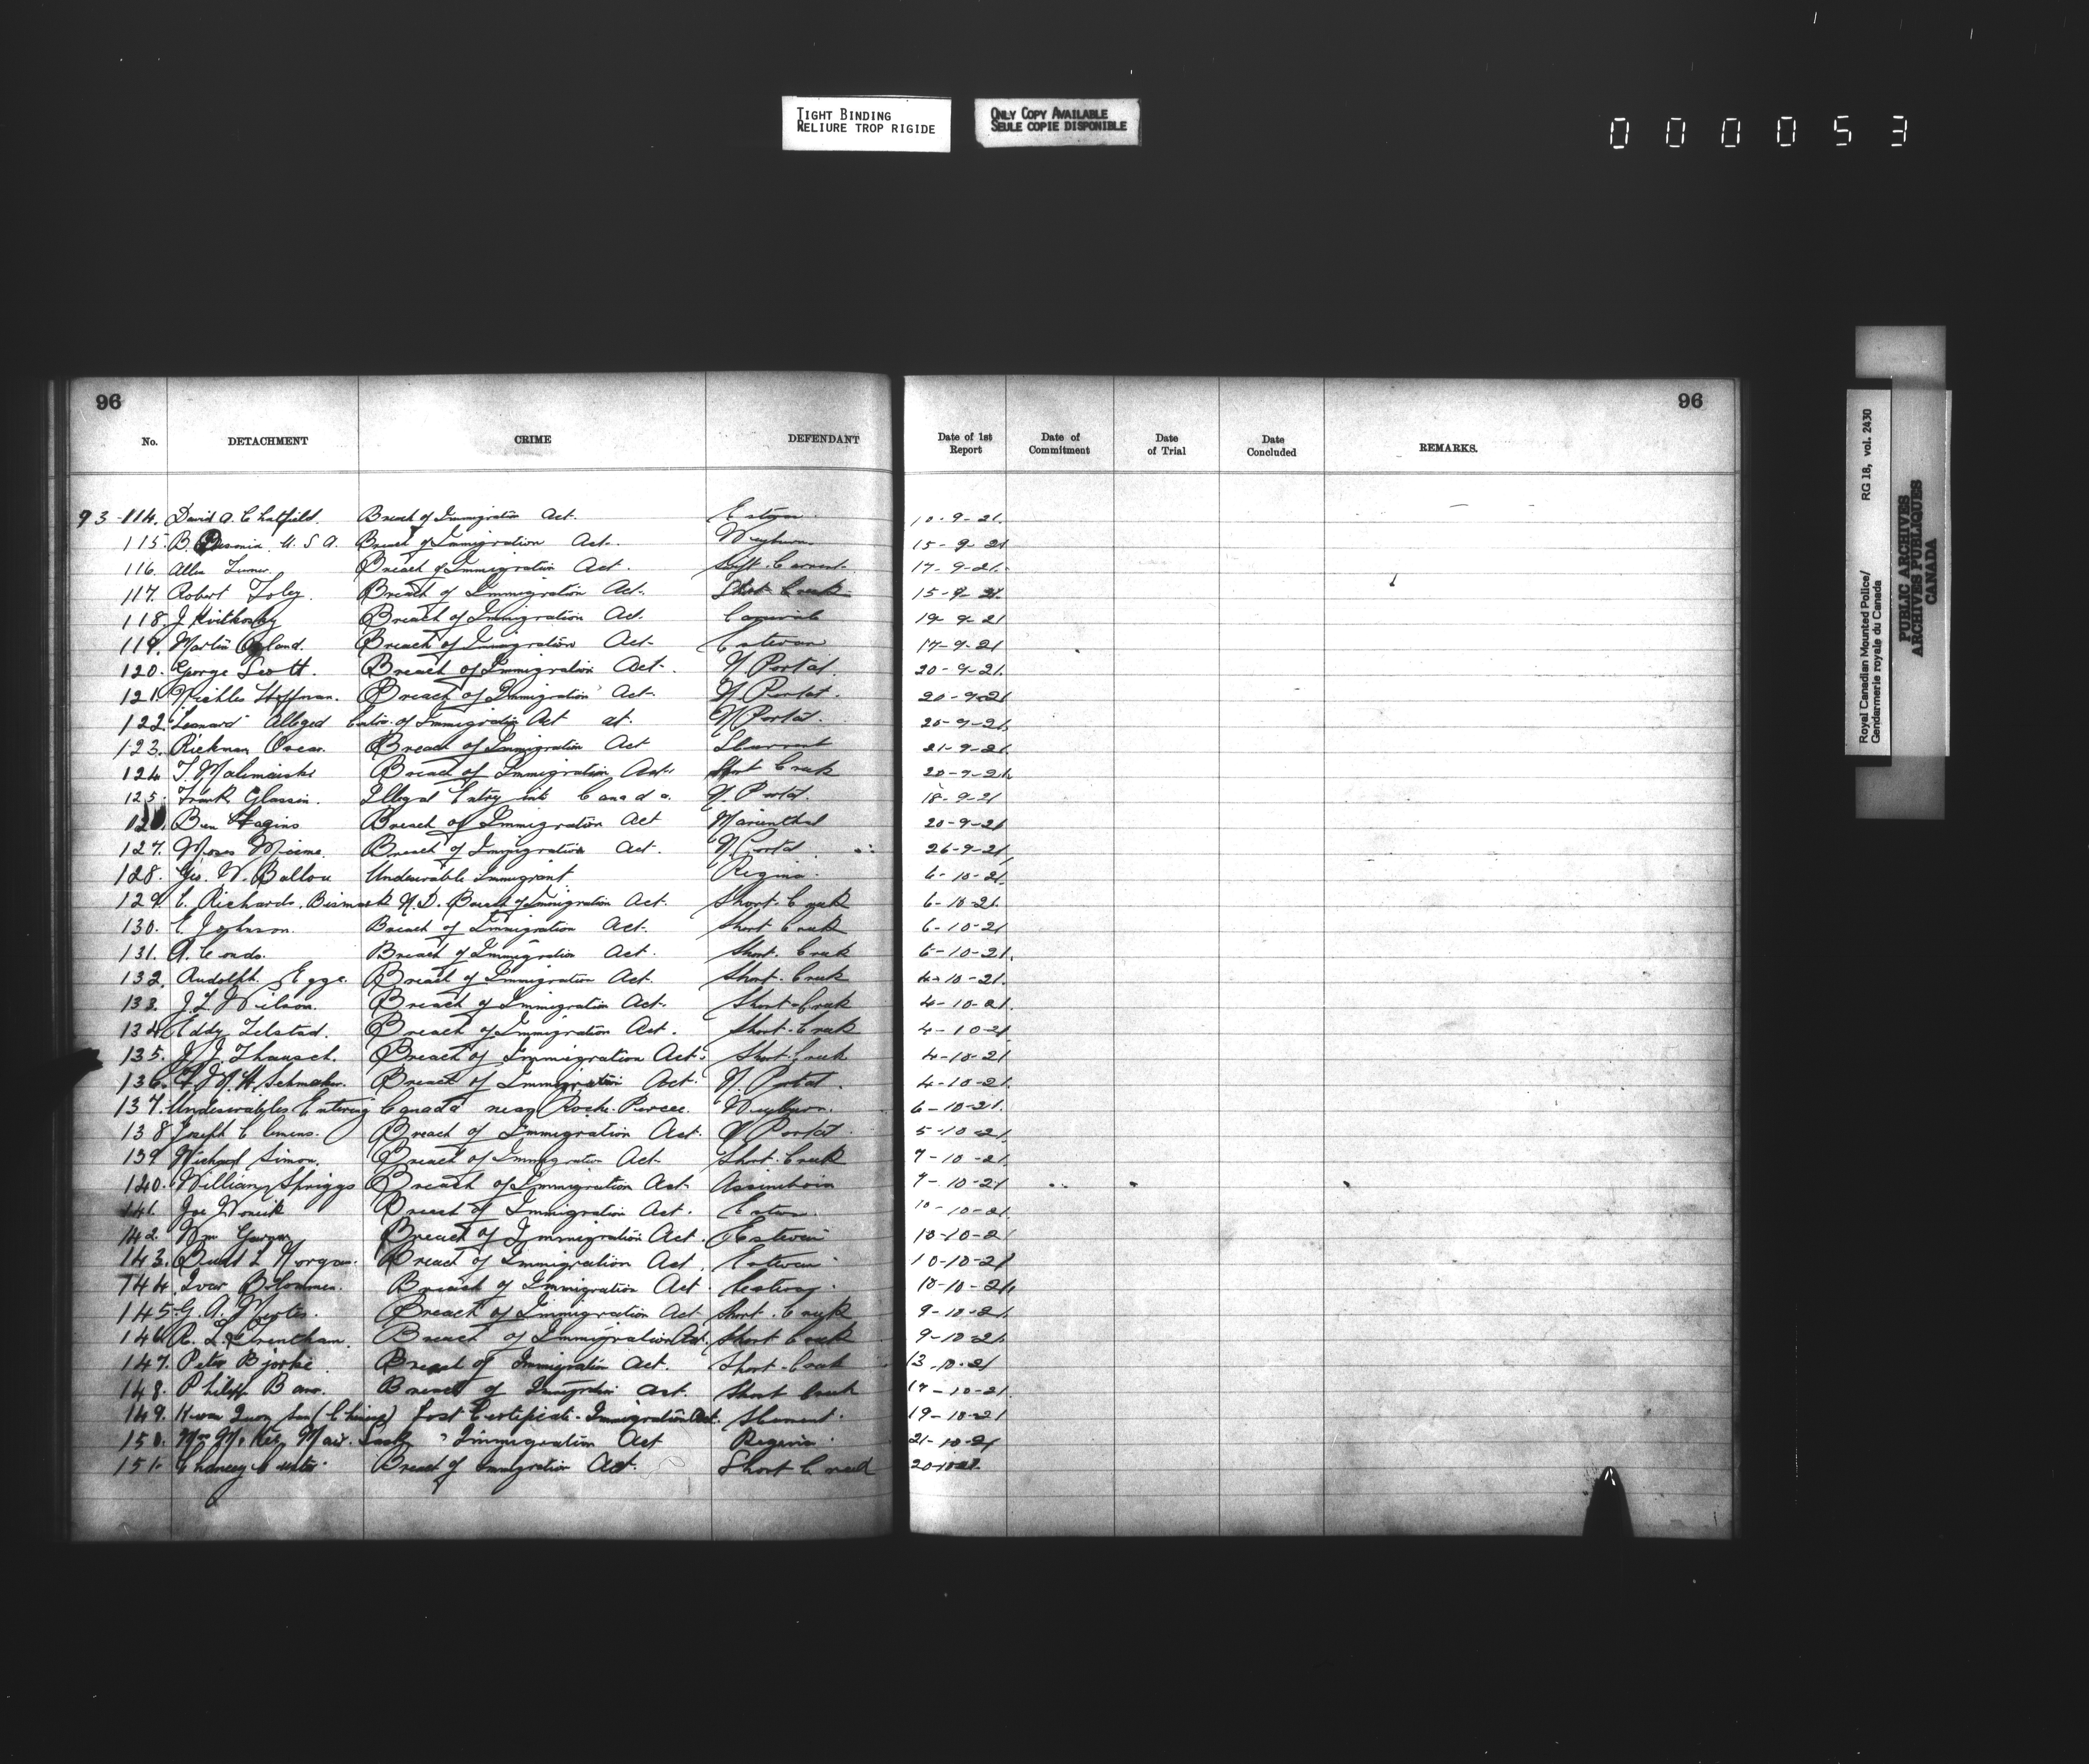 TIGHT BINDING
RELIURE TROP RIGIDE
ONLY COPY AVAILABLE
SEULE COPIE DISPONIBLE
000053
96
96
No. DETACHMENT CRIME DEFENDANT Date of 1st Report Date of Commitment Date of Trial Date Concluded REMARKS.
93-114. David A. Chatfield. Breach of Immigration Act. 10-9-21.
115. B. U.S.A. Breach of Immigration Act. Weyburn 15-9-21
116. Allen Turner. Breach of Immigration Act. Swift Current. 17-9-21.
117. Robert Foley. Breach of Immigration Act. Short Creek 15-9-21.
118. J. Breach of Immigration Act. 19-9-21
119. Martin Breach of Immigration Act. Estevan 17-9-21
120. George Scott. Breach of Immigration Act. N Portal. 20-9-21.
121. Hoffman. Breach of Immigration Act. N. Portal. 20-9-21
122. Leonard Alleged Contra. of Immigration Act at N Portal. 20-9-21.
123. Rickman Oscar. Breach of Immigration Act S Current 21-9-21.
124 T. Breach of Immigration Act. Short Creek 20-9-21.
125. Frank Glassin. Illegal Entry into Canada. N. Portal. 18-9-21
Ben Breach of Immigration Act Marienthal 20-9-21
127. Moses Breach of Immigration Act. N Portal. 26-9-21.
128. Geo. W. Ballou Undesirable Immigrant Regina. 6-10-21.
129. C. Richards. Bismark N.D. Breach of Immigration Act. Short Creek 6-10-21.
130. E. Johnson. Breach of Immigration Act. Short Creek 6-10-21
131. A. Condo. Breach of Immigration Act. Short Creek 6-10-21.
132. Rudolph Egge. Breach of Immigration Act. Short Creek 4-10-21.
133. J. L. Wilson. Breach of Immigration Act. Short Creek 4-10-21.
134. Eddy Telstad. Breach of Immigration Act. Short Creek 4-10-21
135. J. J. Breach of Immigration Act. Short Creek 4-10-21.
136. H. Schmaker. Breach of Immigration Act. N. Portal. 4-10-21.
137. Undesirables Entering Canada near Roche Percee. Weyburn. 6-10-21.
138 Joseph Clemens. Breach of Immigration Act. N Portal. 5-10-21.
139 Simon. Breach of Immigration Act. Short Creek 7-10-21.
140. William Spriggs Breach of Immigration Act. Assiniboia 7-10-21
141. Joe Breach of Immigration Act. 10-10-21.
142. Wm Breach of Immigration Act. Estevan 10-10-21
143. L Morgan. Breach of Immigration Act. Estevan 10-10-21
144. Ivar Breach of Immigration Act. 10-10-21.
145. G. A. Breach of Immigration Act. Short Creek 9-10-21.
146. R. L. Trentham. Breach of Immigration Act. Short Creek 9-10-21.
147. Peter Bjorke Breach of Immigration Act. Short Creek 13-10-21
148. Philip Breach of Immigration Act. Short Creek 17-10-21.
149. (Chinese) Lost Certificate. Immigration Act. S Current. 19-10-21
150. Mrs Sask " Immigration Act Regina. 21-10-21
151. Chancey Breach of Immigration Act. Short Creek 20-10-21.
Royal Canadian Mounted Police/ RG 18, vol. 2430
Gendarmerie royale du Canada
PUBLIC ARCHIVES
ARCHIVES PUBLIQUES
CANADA